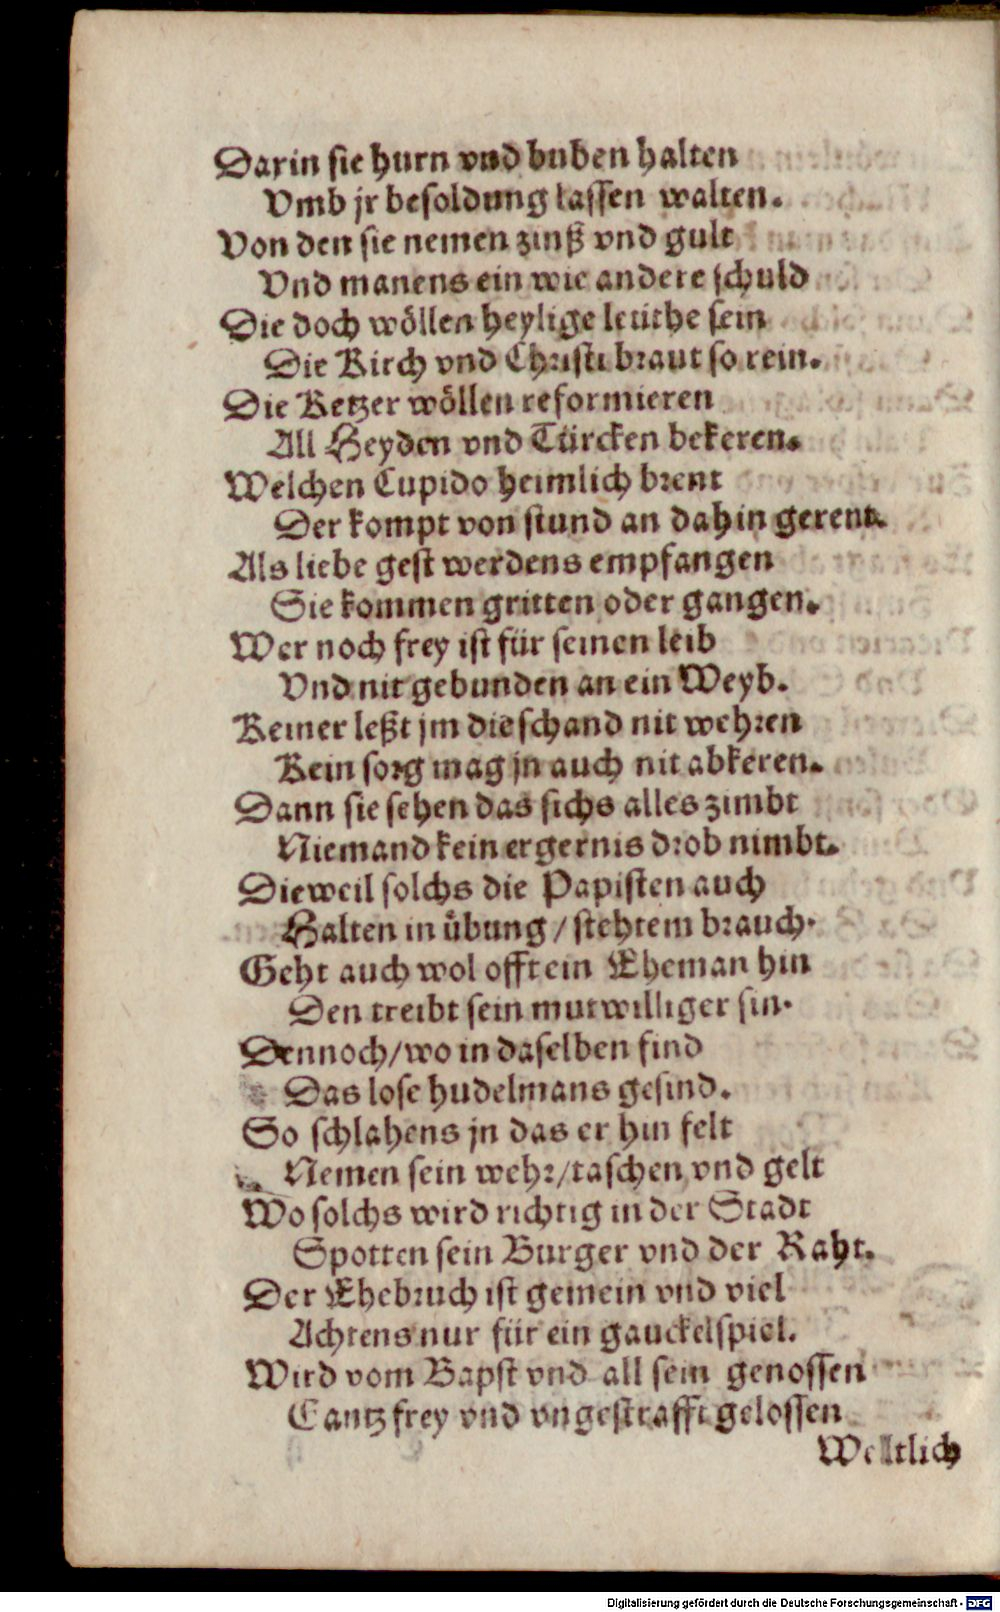 Darin sie hurn vnd buben halten
Vmb jr besoldung lassen walten.
Von den sie nemen zinß vnd gult
Vnd manens ein wie andere schuld
Die doch wöllen heylige leuthe sein
Die Kirch vnd Christi braut so rein.
Die Ketzer wöllen reformieren
All Heyden vnd Türcken bekeren.
Welchen Cupido heimlich brent
Der kompt von stund an dahin gerent.
Als liebe gest werdens empfangen
Sie kommen gritten oder gangen.
Wer noch frey ist für seinen leib
Vnd nit gebunden an ein Weyb.
Keiner leßt jm die schand nit wehren
Kein sorg mag jn auch nit abkeren.
Dann sie sehen das sichs alles zimbt
Niemand kein ergernis drob nimbt.
Dieweil solchs die Papisten auch
Halten in übung / steht em brauch.
Geht auch wol offt ein Eheman hin
Den treibt sein mutwilliger sin.
Dennoch / wo in daselben find
Das lose hudelmans gesind.
So schlahens jn das er hin felt
Nemen sein wehr / taschen vnd gelt
Wo solchs wird richtig in der Stadt
Spotten sein Burger vnd der Raht.
Der Ehebruch ist gemein vnd viel
Achtens nur für ein gauckelspiel.
Wird vom Bapst vnd all sein genossen
Gantz frey vnd vngestrafft gelossen
Weltlich
Digitalisierung gefördert durch die Deutsche Forschungsgemeinschaft - DFG